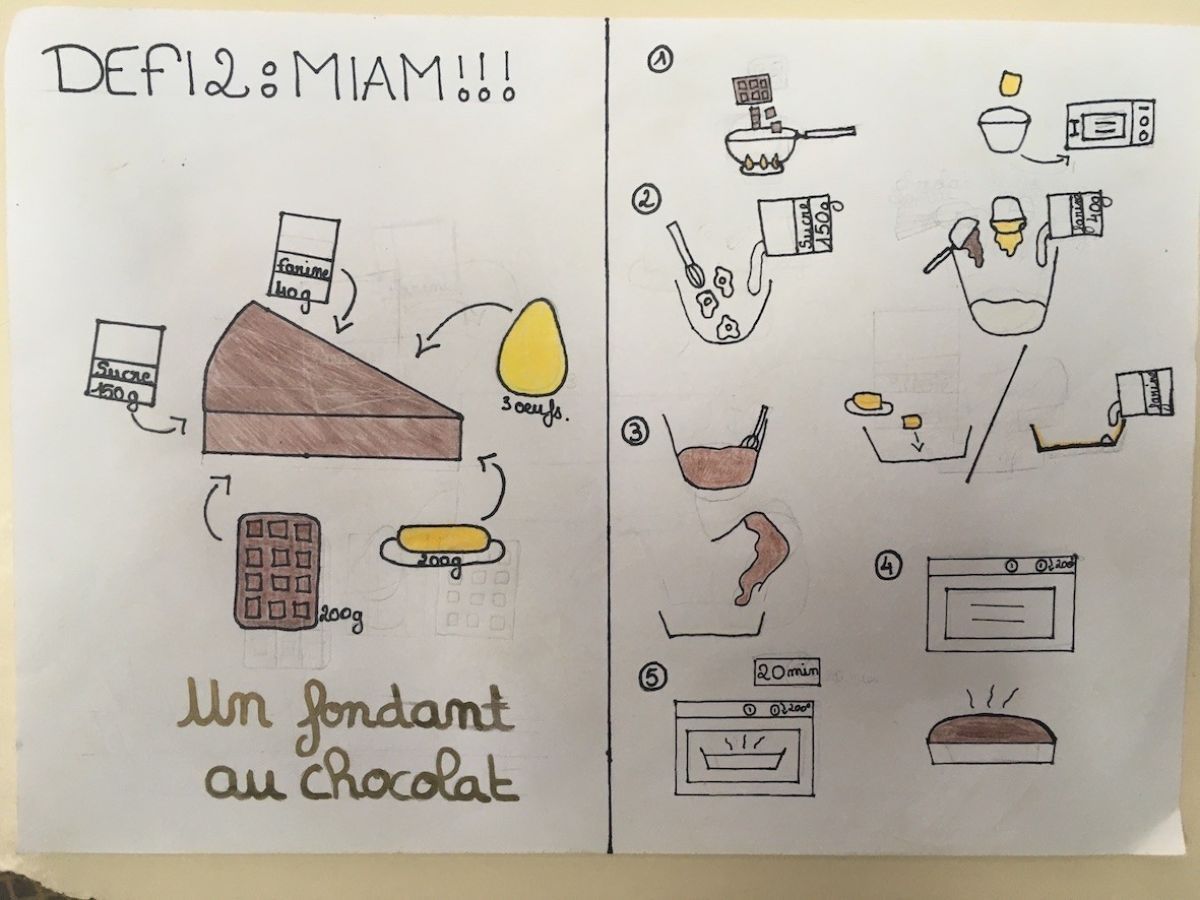 DEFI2: MIAM!!!
farine
40g
Sucre
150g
3 oeufs.
200g
200g
Un fondant
au chocolat
1
2
Sucre
150g
farine
40g
3
farine
4
200°
5
20min
200°